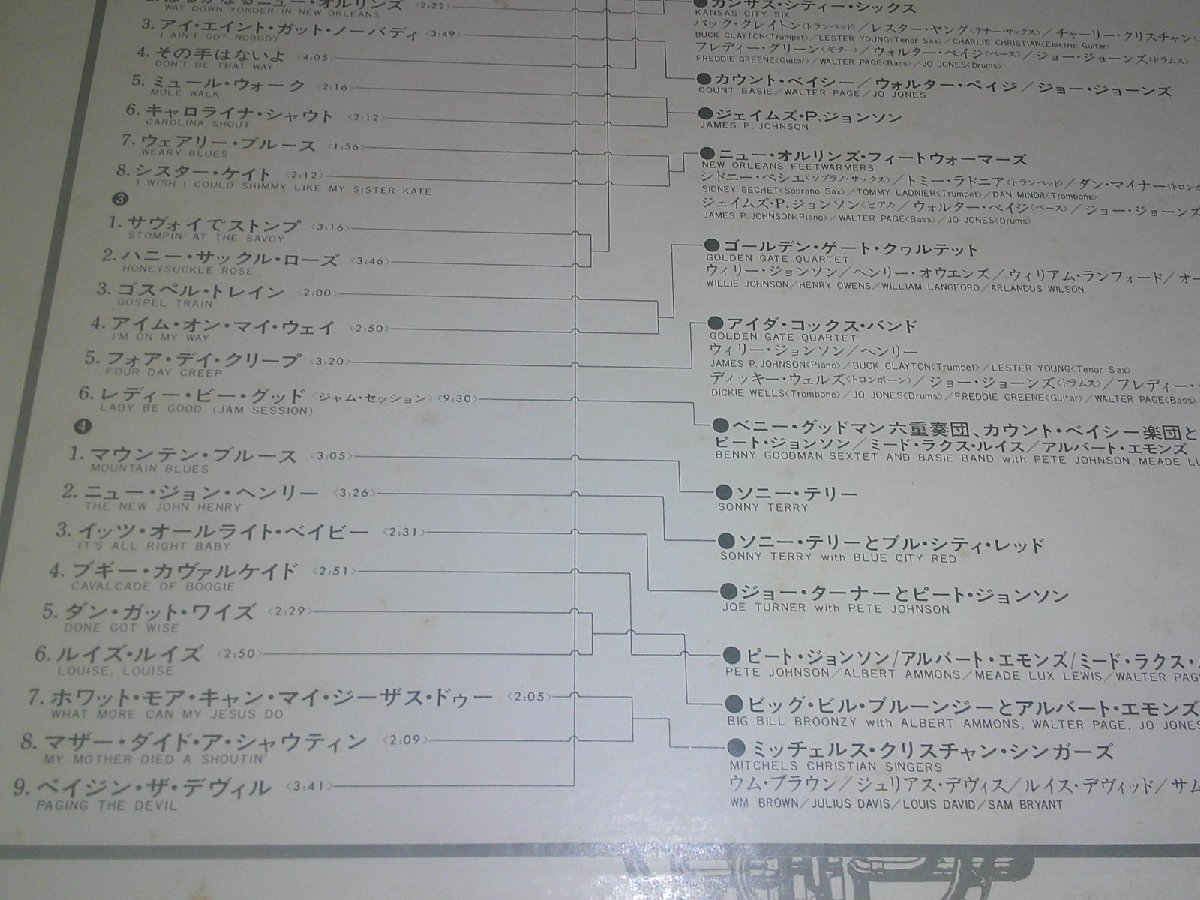 WAY DOWN YONDER IN NEW ORLEANS 〈2:22〉
3. アイ・エイント・ガット・ノーバディ 〈3:49〉
I AIN'T GOT NOBODY
4. その手はないよ 〈4:05〉
DON'T BE THAT WAY
5. ミュール・ウォーク 〈2:16〉
MULE WALK
6. キャロライナ・シャウト 〈2:12〉
CAROLINA SHOUT
7. ウェアリー・ブルース 〈1:56〉
WEARY BLUES
8. シスター・ケイト 〈2:12〉
I WISH I COULD SHIMMY LIKE MY SISTER KATE
❸
1. サヴォイでストンプ 〈3:16〉
STOMPIN' AT THE SAVOY
2. ハニー・サックル・ローズ 〈3:46〉
HONEYSUCKLE ROSE
3. ゴスペル・トレイン 〈2:00〉
GOSPEL TRAIN
4. アイム・オン・マイ・ウェイ 〈2:50〉
I'M ON MY WAY
5. フォア・デイ・クリープ 〈3:20〉
FOUR DAY CREEP
6. レディー・ビー・グッド 〈ジャム・セッション〉 〈9:30〉
LADY BE GOOD (JAM SESSION)
❹
1. マウンテン・ブルース 〈3:05〉
MOUNTAIN BLUES
2. ニュー・ジョン・ヘンリー 〈3:26〉
THE NEW JOHN HENRY
3. イッツ・オールライト・ベイビー 〈2:31〉
IT'S ALL RIGHT BABY
4. ブギー・カヴァルケイド 〈2:51〉
CAVALCADE OF BOOGIE
5. ダン・ガット・ワイズ 〈2:29〉
DONE GOT WISE
6. ルイズ・ルイズ 〈2:50〉
LOUISE, LOUISE
7. ホワット・モア・キャン・マイ・ジーザス・ドゥー 〈2:05〉
WHAT MORE CAN MY JESUS DO
8. マザー・ダイド・ア・シャウティン 〈2:09〉
MY MOTHER DIED A SHOUTIN'
9. ペイジン・ザ・デヴィル 〈3:41〉
PAGING THE DEVIL
●カンサス・シティー・シックス
KANSAS CITY SIX
バック・クレイトン〈トランペット〉／レスター・ヤング〈テナー・サックス〉／チャーリー・クリスチャン
BUCK CLAYTON(Trumpet)／LESTER YOUNG(Tenor Sax)／CHARLIE CHRISTIAN(Electric Guitar)
フレディー・グリーン〈ギター〉／ウォルター・ペイジ〈ベース〉／ジョー・ジョーンズ〈ドラムス〉
FREDDIE GREENE(Guitar)／WALTER PAGE(Bass)／JO JONES(Drums)
●カウント・ベイシー／ウォルター・ペイジ／ジョー・ジョーンズ
COUNT BASIE／WALTER PAGE／JO JONES
●ジェイムズ・P.ジョンソン
JAMES P. JOHNSON
●ニュー・オルリンズ・フィートウォーマーズ
NEW ORLEANS FEETWARMERS
シドニー・ベシエ〈ソプラノ・サックス〉／トミー・ラドニア〈トランペット〉／ダン・マイナー〈トロン
SIDNEY BECHET(Soprano Sax)／TOMMY LADNIER(Trumpet)／DAN MINOR(Trombone)
ジェイムズ・P.ジョンソン〈ピアノ〉／ウォルター・ペイジ〈ベース〉／ジョー・ジョーンズ
JAMES P. JOHNSON(Piano)／WALTER PAGE(Bass)／JO JONES(Drums)
●ゴールデン・ゲート・クヮルテット
GOLDEN GATE QUARTET
ウィリー・ジョンソン／ヘンリー・オウエンズ／ウィリアム・ランフォード／オー
WILLIE JOHNSON／HENRY OWENS／WILLIAM LANGFORD／ARLANDUS WILSON
●アイダ・コックス・バンド
GOLDEN GATE QUARTET
ウィリー・ジョンソン／ヘンリー
JAMES P. JOHNSON(Piano)／BUCK CLAYTON(Trumpet)／LESTER YOUNG(Tenor Sax)
ディッキー・ウェルズ〈トロンボーン〉／ジョー・ジョーンズ〈ドラムス〉／フレディー・
DICKIE WELLS(Trombone)／JO JONES(Drums)／FREDDIE GREENE(Guitar)／WALTER PAGE(Bass)
●ベニー・グッドマン六重奏団、カウント・ベイシー楽団と
ピート・ジョンソン／ミード・ラクス・ルイス／アルバート・エモンズ
BENNY GOODMAN SEXTET AND BASIE BAND with PETE JOHNSON, MEADE LU
●ソニー・テリー
SONNY TERRY
●ソニー・テリーとブル・シティ・レッド
SONNY TERRY with BLUE CITY RED
●ジョー・ターナーとピート・ジョンソン
JOE TURNER with PETE JOHNSON
●ピート・ジョンソン/アルバート・エモンズ/ミード・ラクス・
PETE JOHNSON／ALBERT AMMONS／MEADE LUX LEWIS／WALTER PAG
●ビッグ・ビル・ブルーンジーとアルバート・エモンズ
BIG BILL BROONZY with ALBERT AMMONS, WALTER PAGE, JO JONES
●ミッチェルス・クリスチャン・シンガーズ
MITCHELS CHRISTIAN SINGERS
ウム・ブラウン／ジュリアス・デヴィス／ルイス・デヴィッド／サム
WM BROWN／JULIUS DAVIS／LOUIS DAVID／SAM BRYANT